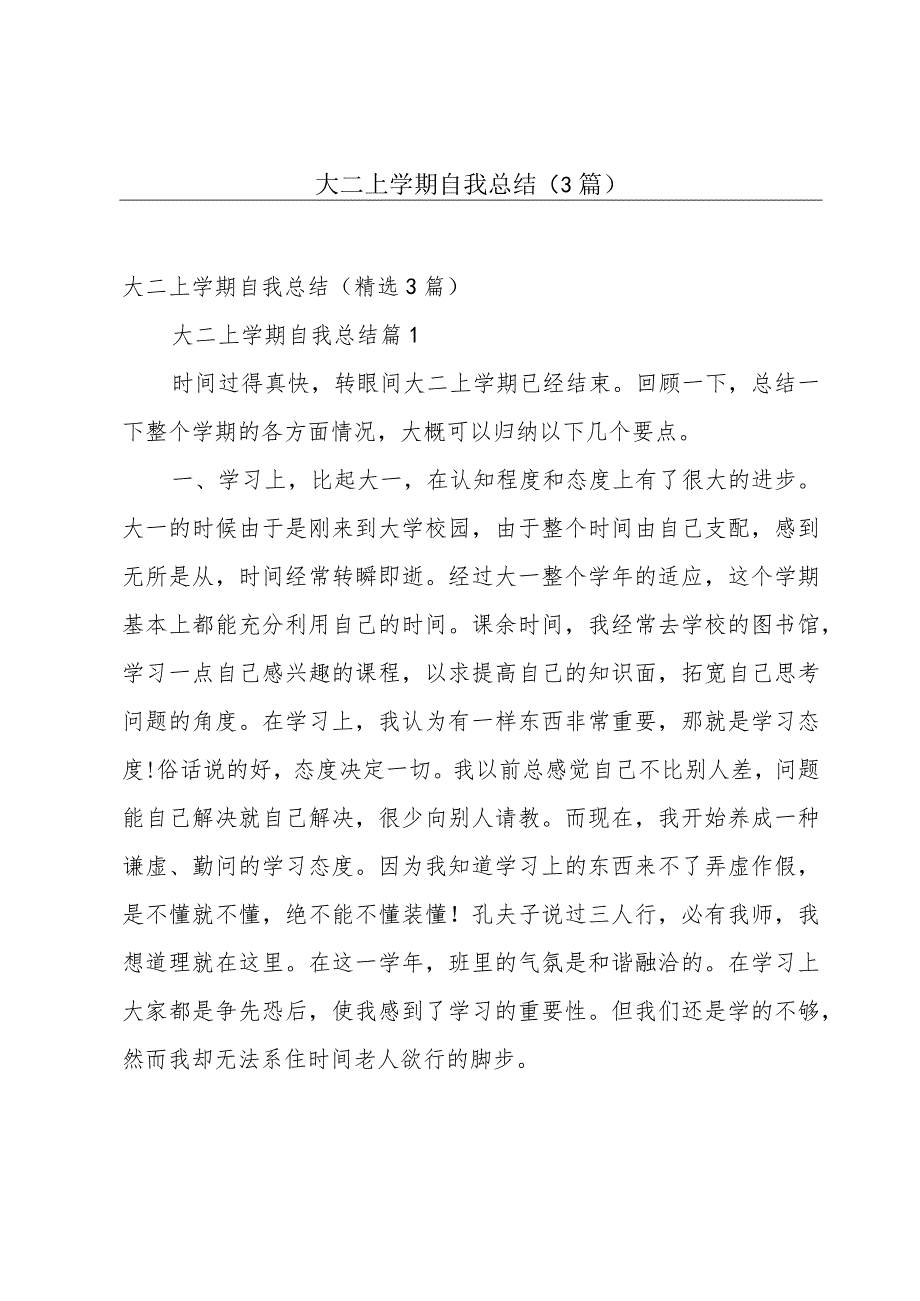 大二上学期自我总结（3 篇）
大二上学期自我总结（精选 3 篇）
大二上学期自我总结篇 1
时间过得真快，转眼间大二上学期已经结束。回顾一下，总结一
下整个学期的各方面情况，大概可以归纳以下几个要点。
一、学习上，比起大一，在认知程度和态度上有了很大的进步。
大一的时候由于是刚来到大学校园，由于整个时间由自己支配，感到
无所是从，时间经常转瞬即逝。经过大一整个学年的适应，这个学期
基本上都能充分利用自己的时间。课余时间，我经常去学校的图书馆，
学习一点自己感兴趣的课程，以求提高自己的知识面，拓宽自己思考
问题的角度。在学习上，我认为有一样东西非常重要，那就是学习态
度!俗话说的好，态度决定一切。我以前总感觉自己不比别人差，问题
能自己解决就自己解决，很少向别人请教。而现在，我开始养成一种
谦虚、勤问的学习态度。因为我知道学习上的东西来不了弄虚作假，
是不懂就不懂，绝不能不懂装懂！孔夫子说过三人行，必有我师，我
想道理就在这里。在这一学年，班里的气氛是和谐融洽的。在学习上
大家都是争先恐后，使我感到了学习的重要性。但我们还是学的不够，
然而我却无法系住时间老人欲行的脚步。